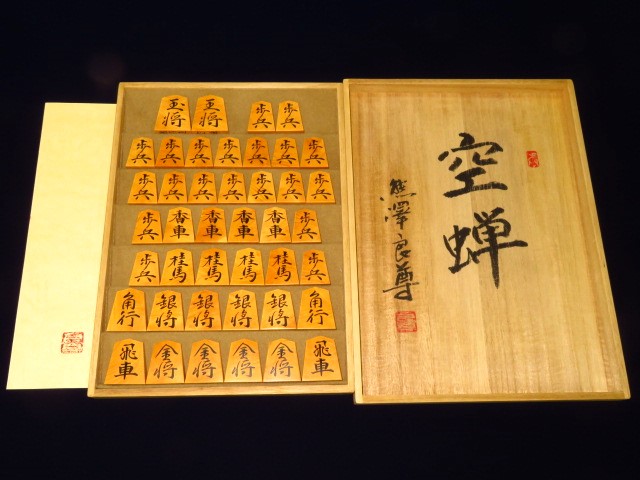 玉将 王将 歩兵 歩兵
歩兵 歩兵 歩兵 歩兵 歩兵 歩兵 歩兵
歩兵 歩兵 歩兵 歩兵 歩兵 歩兵 歩兵
歩兵 香車 香車 香車 香車 歩兵
歩兵 桂馬 桂馬 桂馬 桂馬 歩兵
角行 銀将 銀将 銀将 銀将 角行
飛車 金将 金将 金将 金将 飛車
空蝉
熊澤良尊